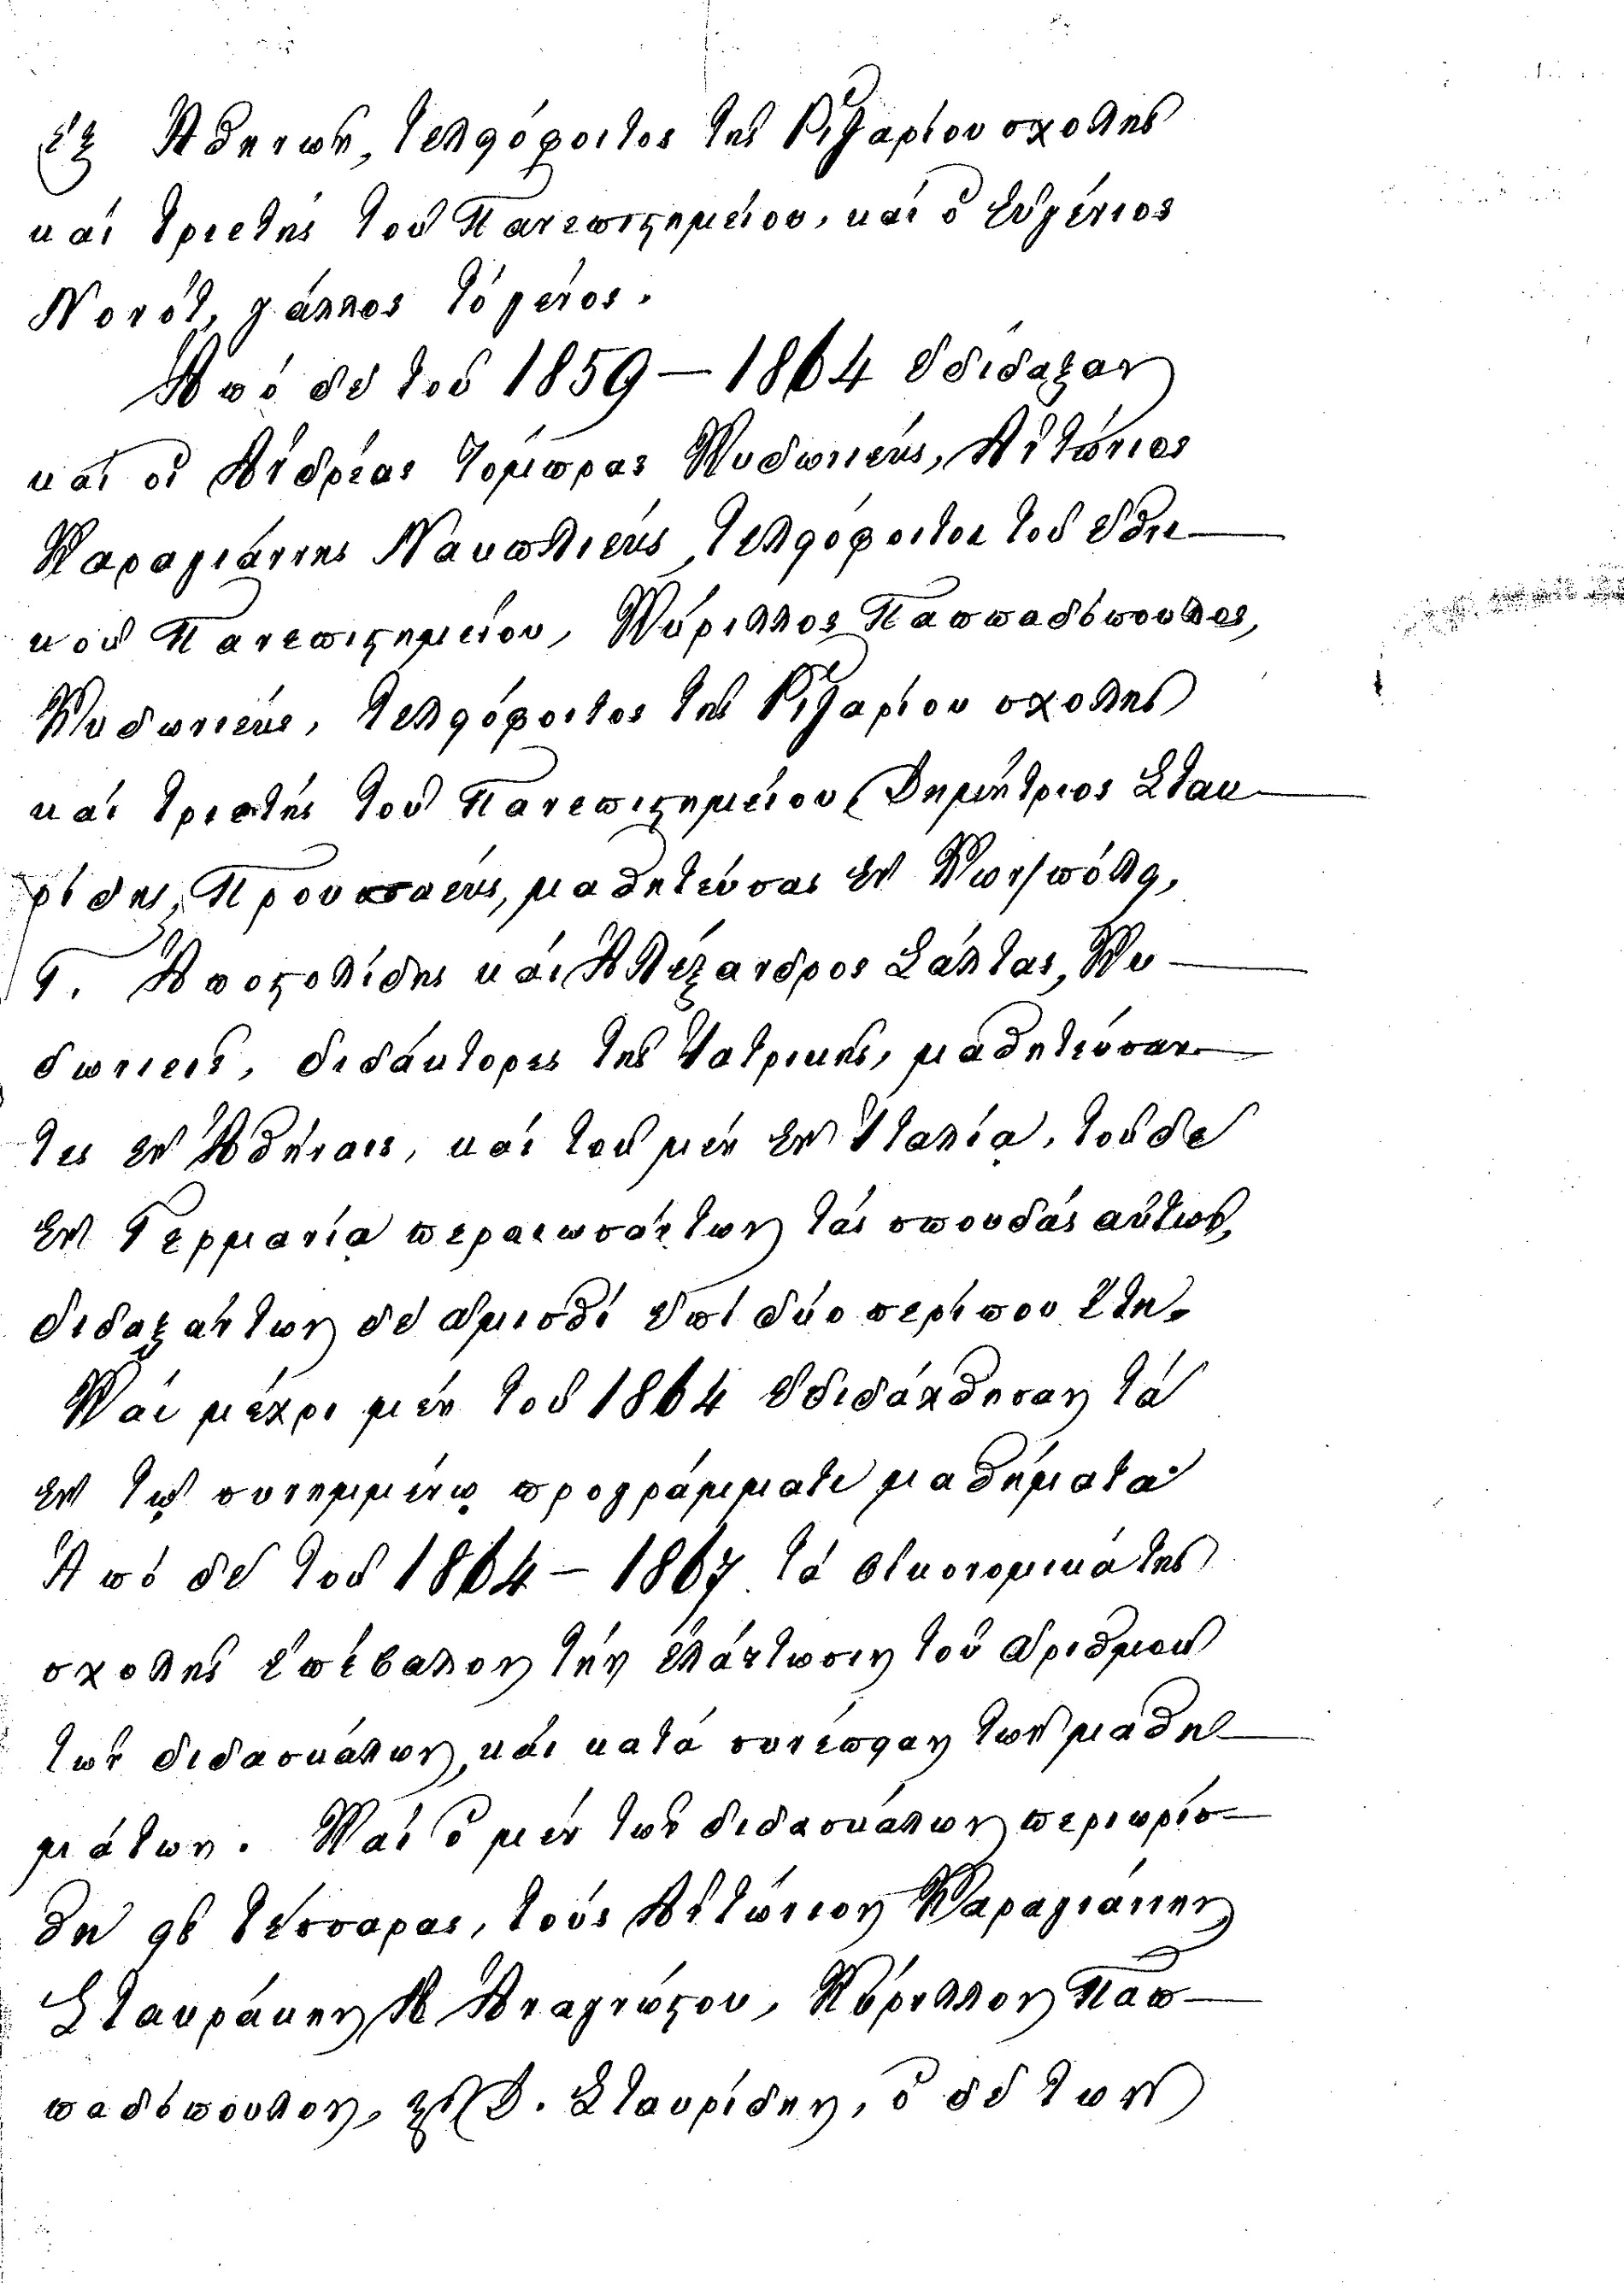 ἐξ Ἀθηνῶν, τελειόφοιτος τῆς Ριζαρίου σχολῆς
καί τριετής τοῦ Πανεπιστημείου, καί ὁ Εὐγένιος
Νονότ, γάλλος τό γένος.
Ἀπό δέ τοῦ 1859 – 1864 ἐδίδαξαν
καί οἱ Ἀνδρέας Τόμπρας Κυδωνιεύς, Ἀντώνιος
Καραγιάννης Ναυπλιεύς, τελειόφοιτος τοῦ ἐθνι-
κοῦ Πανεπιστημείου, Κύριλλος Παππαδόπουλος,
Κυδωνιεύς, τελειόφοιτος τῆς Ριζαρίου σχολῆς
καί τριετής τοῦ Πανεπιστημείου, Δημήτριος Σταυ-
ρίδης, Προυσαεύς, μαθητεύσας ἐν Κων/πόλει,
Γ. Ἀποστολίδης καί Ἀλέξανδρος Σάλτας, Κυ-
δωνιεῖς, διδάκτορες τῆς Ἰατρικῆς, μαθητεύσαν-
τες ἐν Ἀθήναις, καί τοῦ μέν ἐν Ἰταλίᾳ, τοῦ δε
ἐν Γερμανίᾳ περαιωσάντων τάς σπουδάς αὐτῶν,
διδαξάντων δέ ἀμισθί ἐπί δύο περίπου ἔτη.
Καί μέχρι μέν τοῦ 1864 ἐδιδάχθησαν τά
ἐν τῷ συνημμένῳ προγράμματι μαθήματα·
Ἀπό δέ τοῦ 1864 – 1867 τά οἰκονομικά τῆς
σχολῆς ἐπέβαλον τήν ἐλάττωσιν τοῦ ἀριθμοῦ
τῶν διδασκάλων, καί κατά συνέπειαν τῶν μαθη-
μάτων. Καί ὁ μέν τῶν διδασκάλων περιωρίσ-
θη εἰς τέσσαρας, τούς Ἀντώνιον Καραγιάννην
Σταυράκην Ἀ Ἀναγνώστου, Κύριλλον Παπ-
παδόπουλον, καί Δ. Σταυρίδην, ὁ δέ τῶν